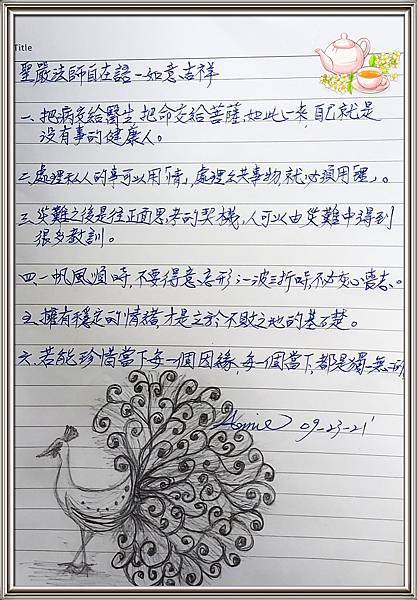 Title
聖嚴法師自在語-如意吉祥
一、把病交給醫生,把命交給菩薩,如此一來,自己就是
沒有事的健康人。
二、處理私人的事可以用「情」,處理公共事物,就必須用「理」。
三、災難之後是往正面思考的契機,人可以由災難中得到
很多教訓。
四、一帆風順時,不要得意忘形;一波三折時,不必灰心喪志。
五、擁有穩定的情緒,才是立於不敗之地的基礎。
六、若能珍惜當下每一個因緣,每一個當下,都是獨一無二的
Annie 09-23-21'